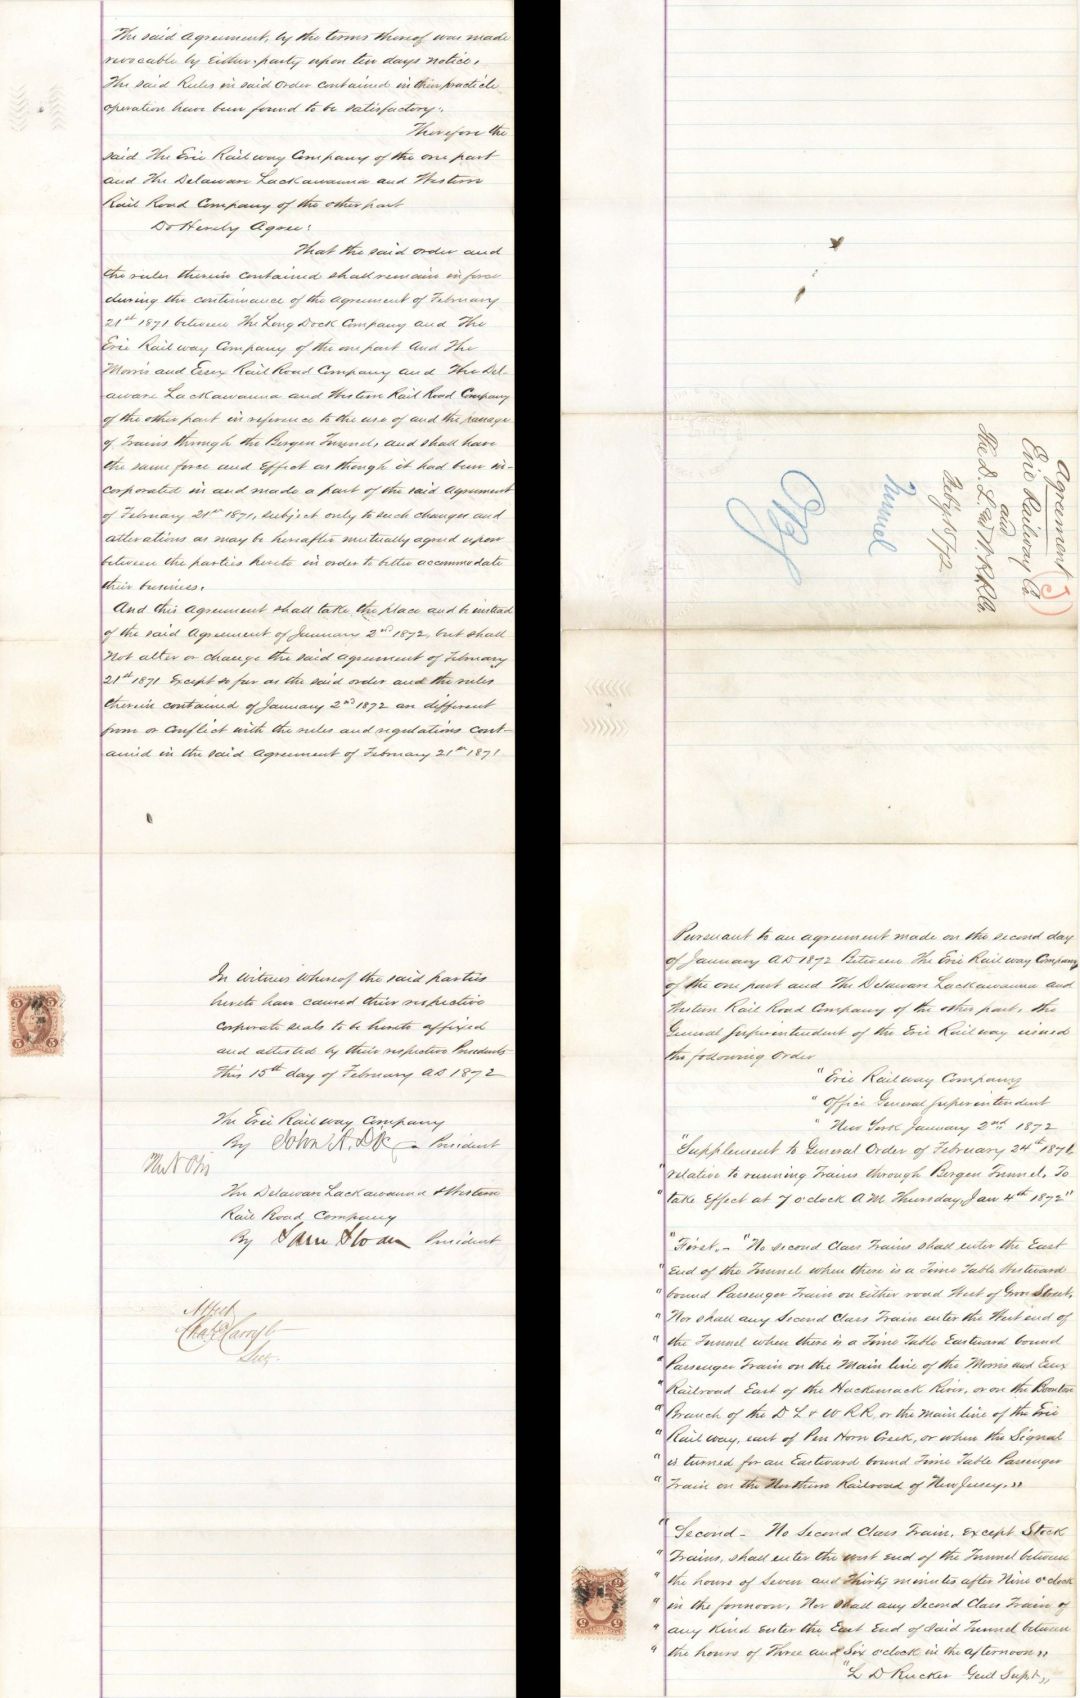 The said Agreement, by the terms thereof was made
revocable by Either party upon ten days notice,
The said Rules in said Order contained in their practicle
operation have been found to be satisfactory.
Therefore the
said The Erie Railway Company of the one part
and The Delaware Lackawanna and Western
Rail Road Company of the other part
Do Hereby Agree:
That the said order and
the rules therein contained shall remain in force
during the continuance of the agreement of February
21st 1871 between The Long Dock Company and The
Erie Railway Company of the one part and The
Morris and Essex Rail Road Company and The Del-
aware Lackawanna and Western Rail Road Company
of the other part in reference to the use of and the passage
of Trains through the Bergen Tunnel, and shall have
the same force and Effect as though it had been in-
corporated in and made a part of the said Agreement
of February 21st 1871, subject only to such changes and
alterations as may be hereafter mutually agreed upon
between the parties hereto in order to better accommodate
their business.
And this Agreement shall take the place and be instead
of the said Agreement of January 2nd 1872, but shall
Not alter or change the said Agreement of February
21st 1871 Except so far as the said order and the rules
therein contained of January 2nd 1872 are different
from or conflict with the rules and regulations cont-
ained in the said Agreement of February 21st 1871.
In Witness Whereof the said parties
hereto have caused their respective
corporate seals to be hereto affixed
and attested by their respective Presidents
this 15th day of February AD 1872
The Erie Railway Company
By John A. Dix President
The Delaware Lackawanna & Western
Rail Road Company
By Sam Sloan President
Attest
Secy.
Agreement
Erie Railway Co
and
The D. L. and W. R. R. Co.
Feby 15/72
Tunnel
Pursuant to an agreement made on the second day
of January AD 1872 Between The Erie Railway Company
of the one part and The Delaware Lackawanna and
Western Rail Road Company of the other part, the
General Superintendent of the Erie Railway issued
the following Order
"Erie Railway Company
"Office General Superintendent
"New York January 2nd 1872
"Supplement to General Order of February 24th 1871,
"relative to running Trains through Bergen Tunnel, To
"take Effect at 7 o'clock A.M. Thursday, Jan 4th 1872"
"First.- "No second Class Trains shall enter the East
"End of the Tunnel when there is a Time Table Westward
"bound Passenger Train on either road West of Grove Street,
"Nor shall any Second Class Train enter the West end of
"the Tunnel when there is a Time Table Eastward bound
"Passenger Train on the Main line of the Morris and Essex
"Railroad East of the Hackensack River, or on the Boonton
"Branch of the D L & W R R, or the main line of the Erie
"Railway, east of Pen Horn Creek, or when the Signal
"is turned for an Eastward bound Time Table Passenger
"Train on the Northern Railroad of New Jersey."
"Second - No Second Class Train, Except Stock
"Trains, shall enter the west End of the Tunnel between
"the hours of Seven and Thirty minutes after Nine o'clock
"in the forenoon, Nor shall any Second Class Train of
"any Kind enter the East End of said Tunnel between
"the hours of Three and Six o'clock in the afternoon"
"L D Rucker Genl Supt"